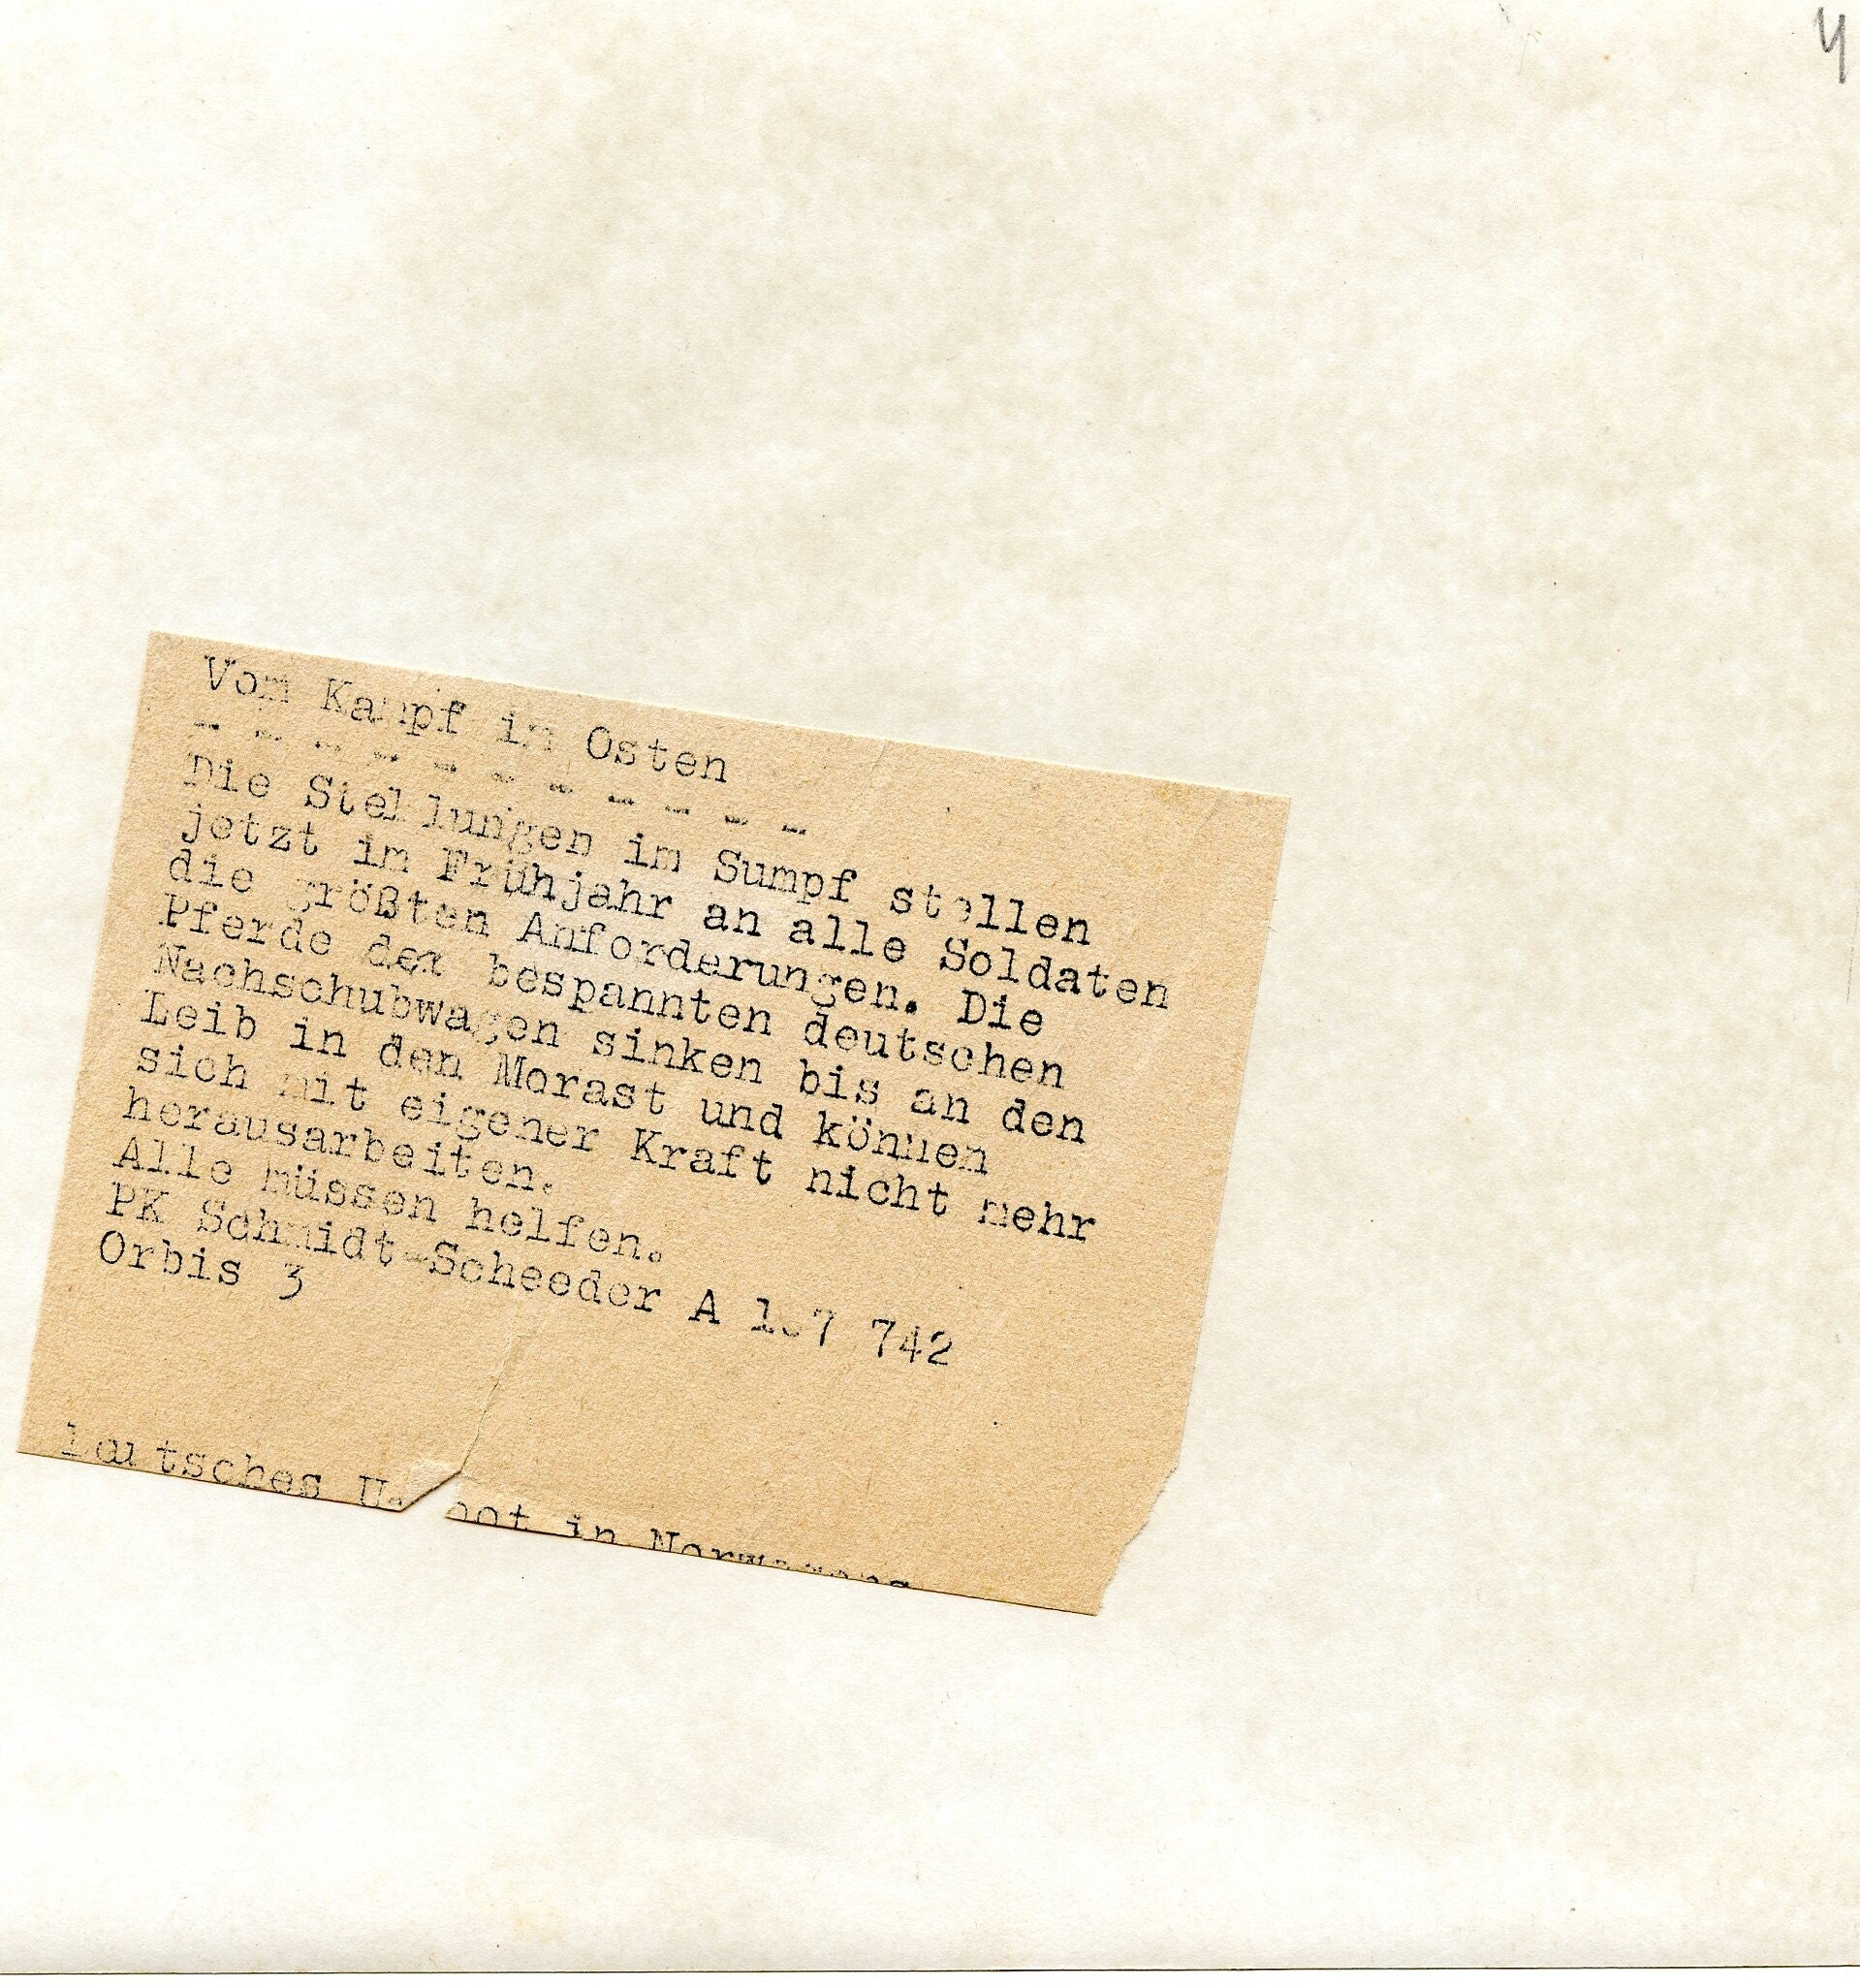 4
Vom Kampf im Osten
- - - - - - - - - - -
Die Stellungen im Sumpf stellen
jetzt im Frühjahr an alle Soldaten
die größten Anforderungen. Die
Pferde der bespannten deutschen
Nachschubwagen sinken bis an den
Leib in den Morast und können
sich mit eigener Kraft nicht mehr
herausarbeiten.
Alle müssen helfen.
PK Schmidt-Scheeder A 742
Orbis 3
in